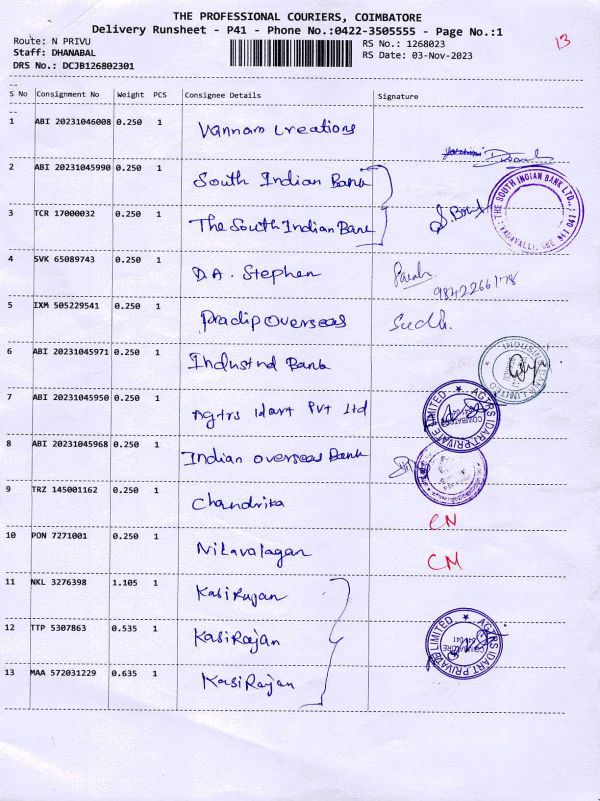 THE PROFESSIONAL COURIERS, COIMBATORE
Delivery Runsheet - P41 - Phone No.:0422-3505555 - Page No.:1
13
Route: N PRIVU
RS No.: 1268023
Staff: DHANABAL
RS Date: 03-Nov-2023
DRS No.: DCJB126802301
S No Consignment No Weight PCS Consignee Details Signature
1 ABI 20231046008 0.250 1 Vannam Creations
2 ABI 20231045990 0.250 1 South Indian Bank
THE SOUTH INDIAN BANK LTD., VADAVALLI, CBE 641 041
3 TCR 17000032 0.250 1 The South Indian Bank
4 SVK 65089743 0.250 1 D.A. Stephen
9842266178
5 IXM 505229541 0.250 1 Pradip Overseas Sudh.
6 ABI 20231045971 0.250 1 Industnd Bank
7 ABI 20231045950 0.250 1 Agtrs Idart Pvt Ltd
AGTRS IDART PRIVATE LIMITED
8 ABI 20231045968 0.250 1 Indian Overseas Bank
9 TRZ 145001162 0.250 1 Chandrika CN
10 PON 7271001 0.250 1 Nilavalagan CM
11 NKL 3276398 1.105 1 Kasi Rajan
12 TTP 5307863 0.535 1 Kasi Rajan
AGTRS IDART PRIVATE LIMITED
13 MAA 572031229 0.635 1 Kasi Rajan